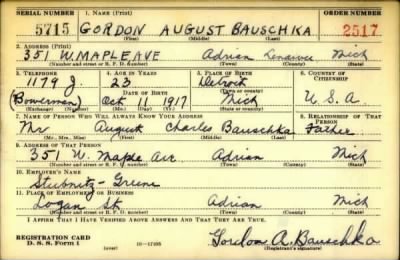 SERIAL NUMBER 1. NAME (Print) ORDER NUMBER
5715 GORDON AUGUST BAUSCHKA 2517
(First) (Middle) (Last)
2. ADDRESS (Print)
351 W. MAPLE AVE Adrian Lenawee Mich
(Number and street or R. F. D. number) (Town) (County) (State)
3. TELEPHONE 4. AGE IN YEARS 5. PLACE OF BIRTH 6. COUNTRY OF CITIZENSHIP
1179 J. 23 Detroit
DATE OF BIRTH (Town or county)
(Bowerman) Oct 11, 1917 Mich U.S.A
(Exchange) (Number) (Mo.) (Day) (Yr.) (State or country)
7. NAME OF PERSON WHO WILL ALWAYS KNOW YOUR ADDRESS 8. RELATIONSHIP OF THAT PERSON
Mr August Charles Bauschka Father
(Mr., Mrs., Miss) (First) (Middle) (Last)
9. ADDRESS OF THAT PERSON
351 W. Maple Ave Adrian Mich
(Number and street or R. F. D. number) (Town) (County) (State)
10. EMPLOYER'S NAME
Stubnitz Greene
11. PLACE OF EMPLOYMENT OR BUSINESS
Logan St Adrian Mich
(Number and street or R. F. D. number) (Town) (County) (State)
I AFFIRM THAT I HAVE VERIFIED ABOVE ANSWERS AND THAT THEY ARE TRUE.
REGISTRATION CARD
D. S. S. Form 1 (over) 16-17105 Gordon A. Bauschka
(Registrant's signature)